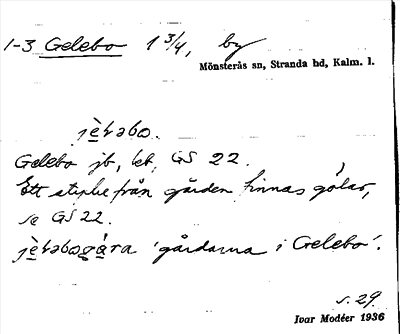 1-3 Gelebo 1 3/4, by
Mönsterås sn, Stranda hd, Kalm. l.
jè̱ləbo.
Gelebo jb, kb, GS 22.
Ett stycke från gården finnas gölar,
se GS 22.
'gårdarna i Gelebo'.
s. 29
Ivar Modéer 1936